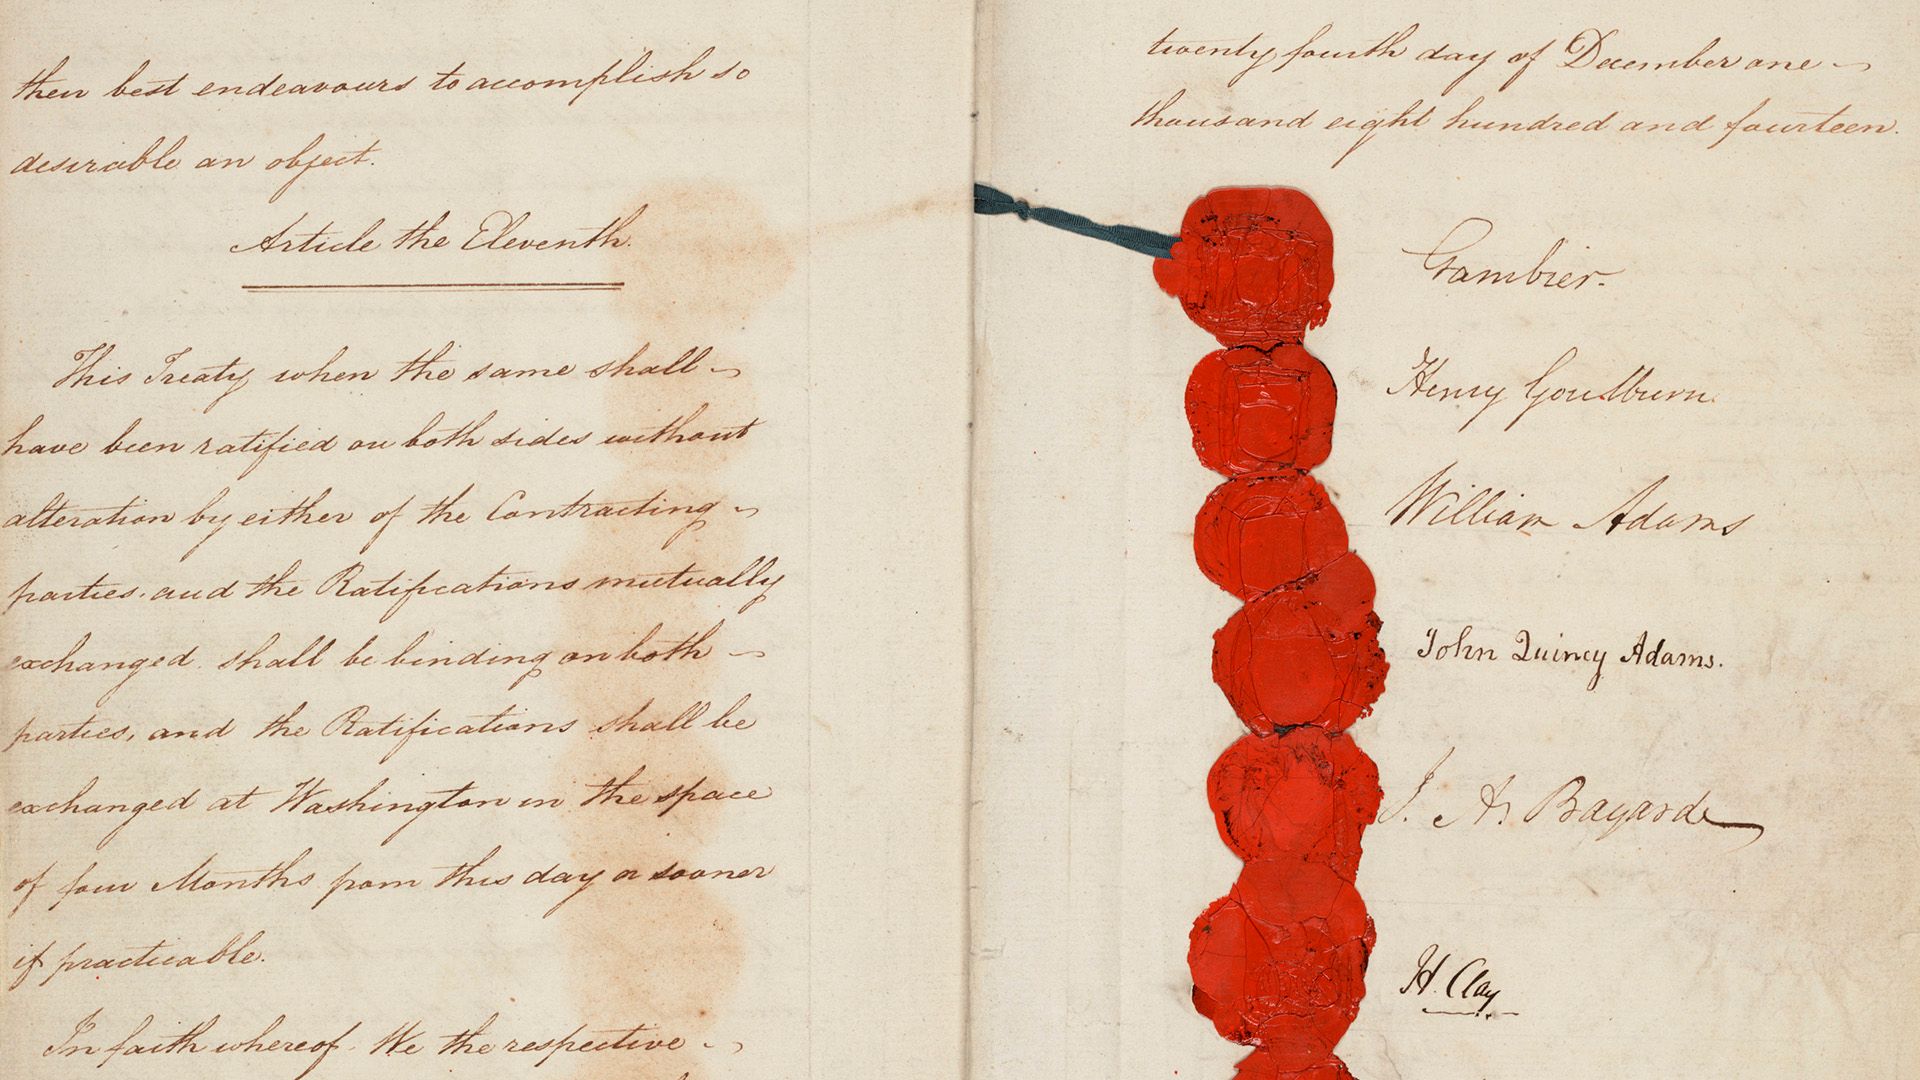 their best endeavours to accomplish so
desirable an object.
Article the Eleventh.
This Treaty when the same shall
have been ratified on both sides without
alteration by either of the Contracting
parties, and the Ratifications mutually
exchanged, shall be binding on both
parties, and the Ratifications shall be
exchanged at Washington in the space
of four Months from this day or sooner
if practicable.
In faith whereof, We the respective
twenty fourth day of December one
thousand eight hundred and fourteen.
Gambier.
Henry Goulburn.
William Adams
John Quincy Adams.
J. A. Bayard
H. Clay